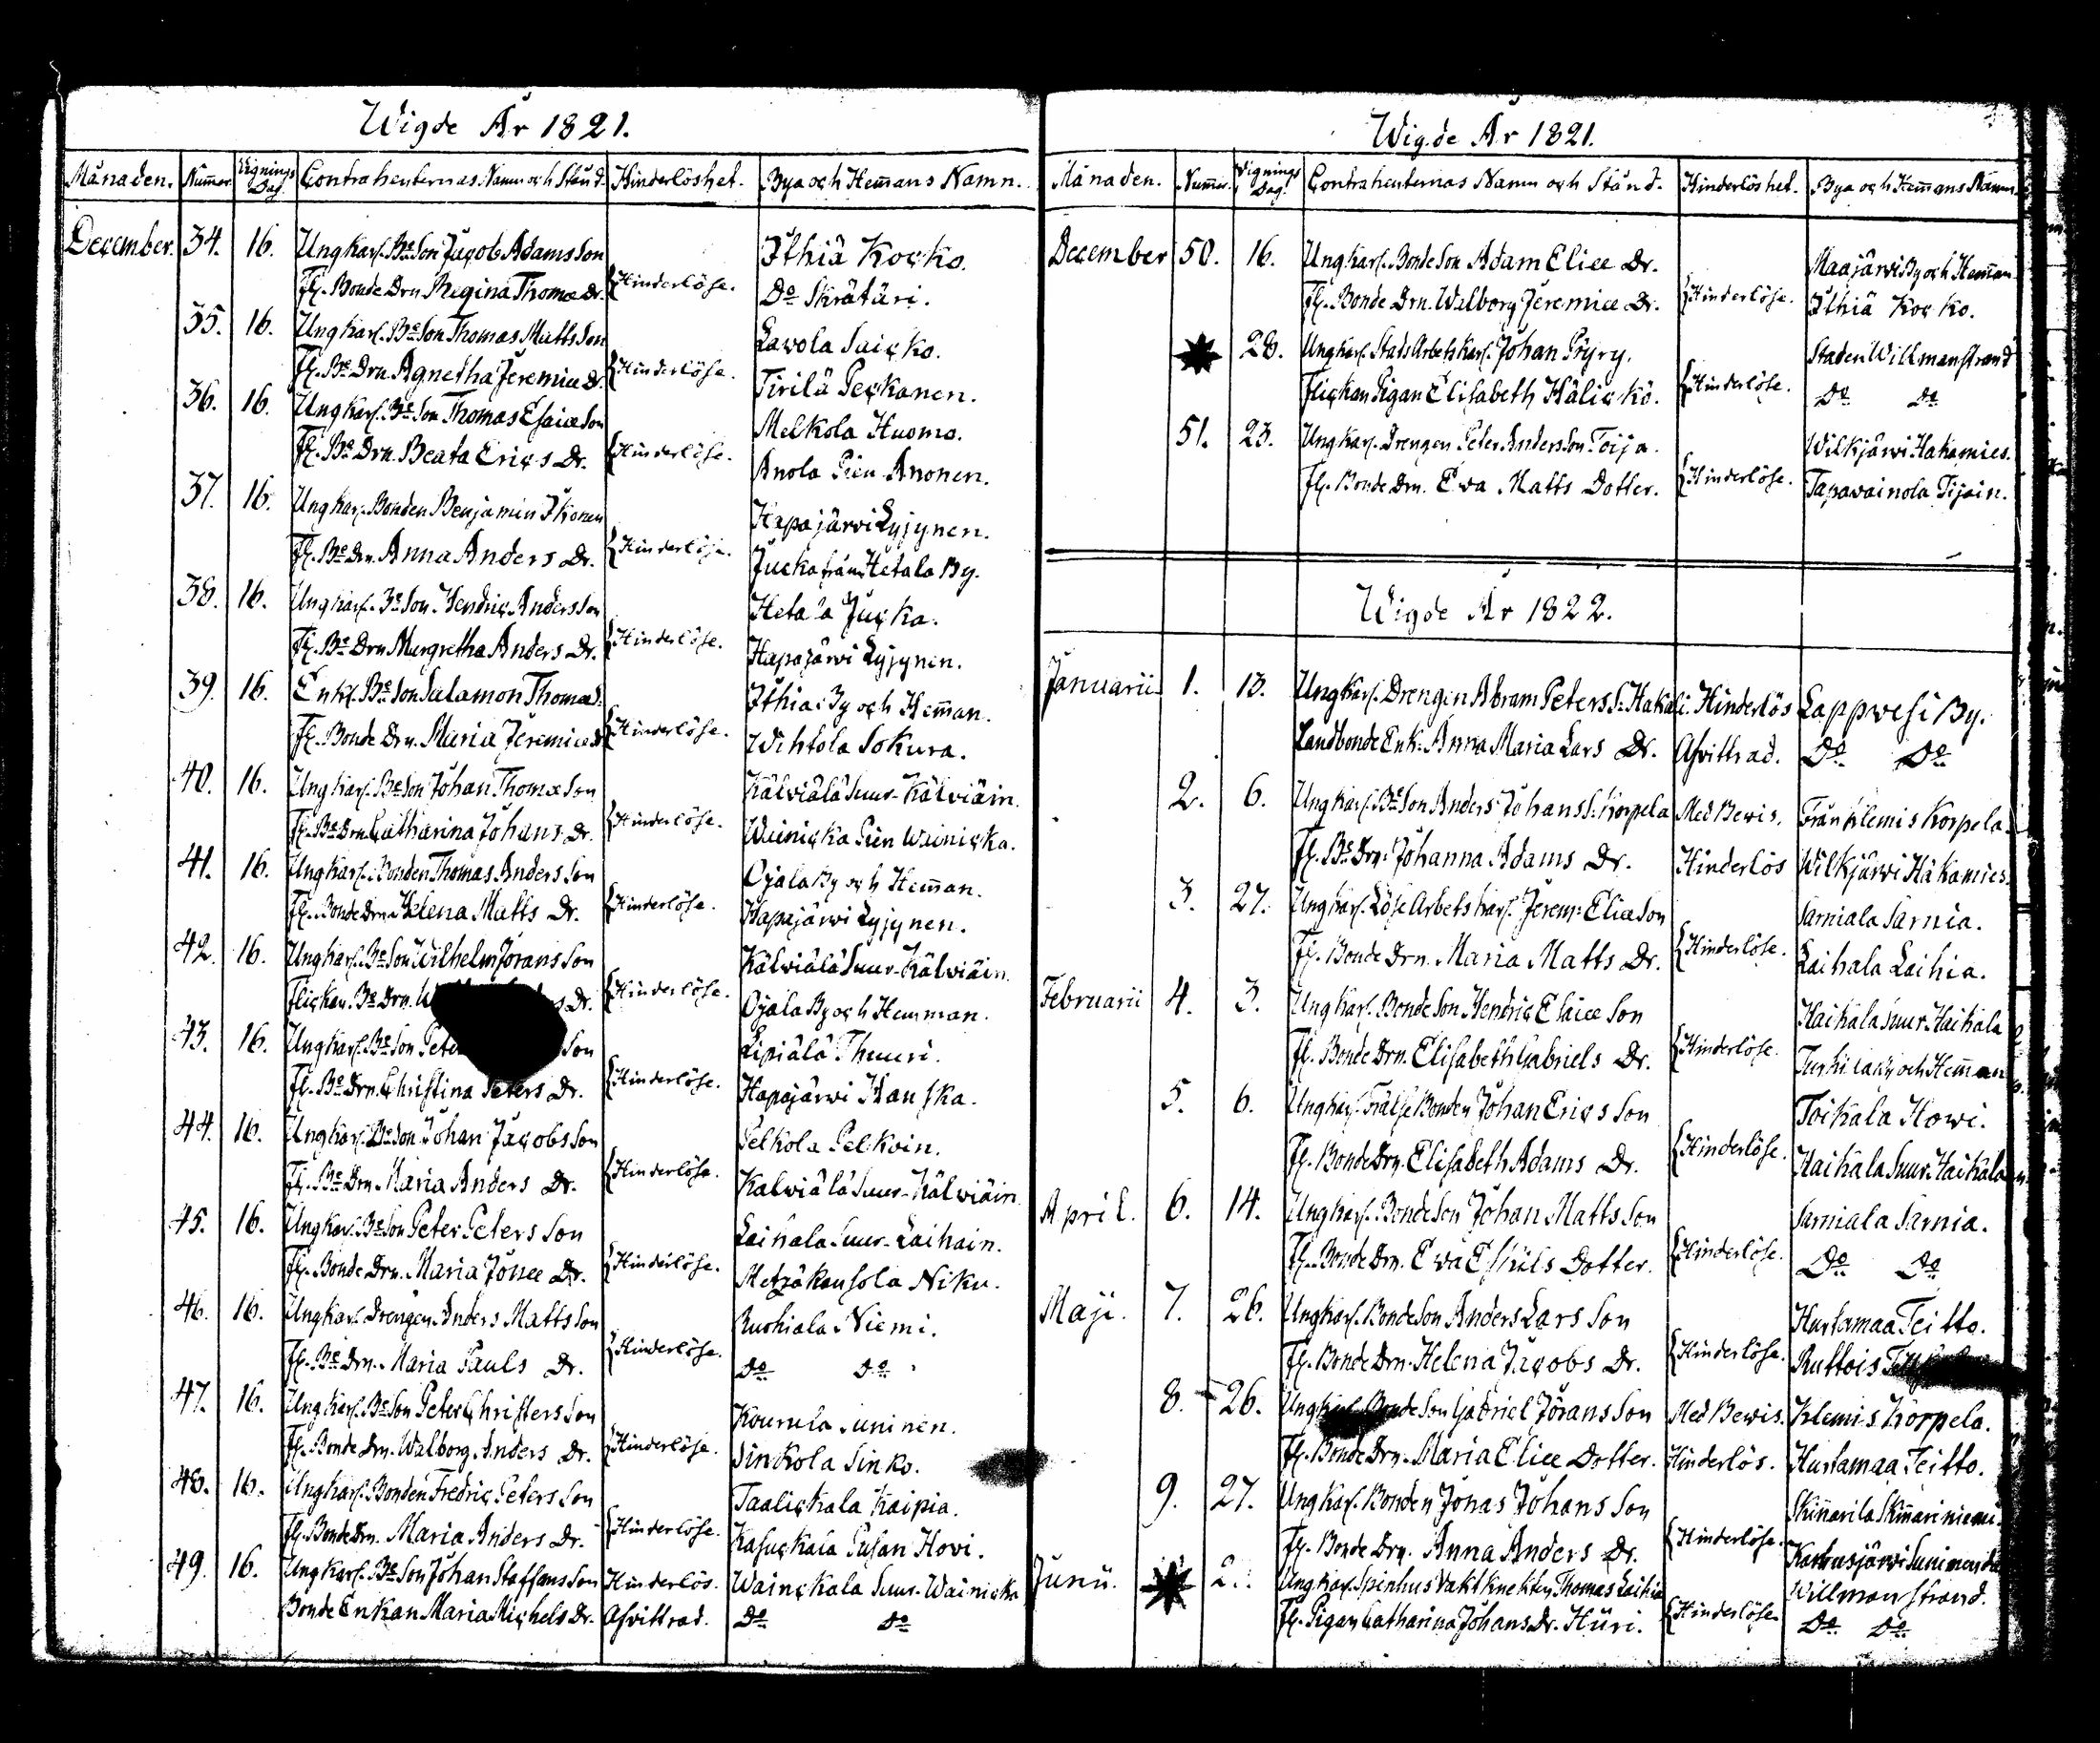 Wigde År 1821.
Månaden. Num̄er. Vignings Dag. Contrahenternas Namn och Stånd. Hinderlöshet. Bya och Hem̄ans Namn.
December. 34. 16. Ungkarl. Be Son Jacob Adams Son Ithiä Kocko.
Fl. Bonde Drn Regina Thomæ Dr. Hinderlöse. Do Skrätäri.
35. 16. Ungkarl. Be Son Thomas Matts Son Lavola Saicko.
Fl. Be Drn Agnetha Jeremiæ Dr. Hinderlöse. Tirilä Peckanen.
36. 16. Ungkarl. Be Son Thomas Esaiæ Son Melkola Huomo.
Fl. Be Drn. Beata Erics Dr. Hinderlöse. Anola Pien Anonen.
37. 16. Ungkarl. Bonden Benjamin Ikonen Hapajärvi Lyjynen.
Fl. Be Drn. Anna Anders Dr. Hinderlöse. Jucka från Hetala By.
38. 16. Ungkarl. Be Son. Hendric Anders Son Hetala Jucka.
Fl. Be Drn Margretha Anders Dr. Hinderlöse. Hapajärvi Lyjynen.
39. 16. Enkl. Be Son Salamon Thomæ S. Ithiä By och Hem̄an.
Fl. Bonde Drn. Maria Jeremiæ Dr Hinderlöse. Wihtola Sokura.
40. 16. Ungkarl. Be Son Johan Thomæ Son Kälviälä Suur-Kälviäin.
Fl. Be Drn Catharina Johans Dr. Hinderlöse. Wainicka Pien Wainicka.
41. 16. Ungkarl. Bonden Thomas Anders Son Ojala By och Hem̄an.
Fl. Bonde Drn. Helena Matts Dr. Hinderlöse. Hapajärvi Lyjynen.
42. 16. Ungkarl. Be Son Wilhelm Jörans Son Kälviälä Suur-Kälviäin.
Flickan. Be Drn. Dr. Hinderlöse. Ojala By och Hemman.
43. 16. Ungkarl. Be Son Son Lipiälä Thuuri.
Fl. Be Drn. Christina Peters Dr. Hinderlöse. Hapajärvi Hanska.
44. 16. Ungkarl. Be Son Johan Jacobs Son Pelkola Pelkoin.
Fl. Be Drn. Maria Anders Dr. Hinderlöse. Kälviälä Suur-Kälviäin
45. 16. Ungkarl. Be Son Peter Peters Son Laihala Suur-Laihain.
Fl. Bonde Drn. Maria Jonæ Dr. Hinderlöse. Metzäkansola Niku.
46. 16. Ungkarl. Drengen Anders Matts Son Ruohiala Niemi.
Fl. Be Drn. Maria Pauls Dr. Hinderlöse. Do Do
47. 16. Ungkarl. Be Son Peter Christers Son Kourula Suninen.
Fl. Bonde Drn. Walborg Anders Dr. Hinderlöse. Sinkola Sinko.
48. 16. Ungkarl. Bonden Fredric Peters Son Taalickala Kaipia.
Fl. Bonde Drn. Maria Anders Dr. Hinderlöse. Kasuckala Pusan Hovi.
49. 16. Ungkarl. Be Son Johan Staffans Son Hinderlös. Wainckala Suur-Wainicka
Bonde Enkan Maria Michels Dr. Afvittrad. Do Do
Wigde År 1821.
Månaden. Num̄er. Vignings Dag. Contrahenternas Namn och Stånd. Hinderlöshet. Bya och Hem̄ans Namn.
December 50. 16. Ungkarl. Bonde Son Adam Eliæ Dr. Maajärvi By och Hem̄an.
Fl. Bonde Drn. Walborg Jeremiæ Dr. Hinderlöse. Ithiä Kocko.
28. Ungkarl. Stads Arbets Karl. Johan Pöyry. Staden Willmanstrand
Flickan Pigan Elisabeth Hälickö. Hinderlöse. Do Do
51. 23. Ungkarl. Drengen Peter Anders Son Toija. Wilkjärvi Hakamies.
Fl. Bonde Drn. Eva Matts Dotter. Hinderlöse. Tapavainola Tijain.
Wigde År 1822.
Januarii 1. 13. Ungkarl. Drengen Abram Peters S. Hakali. Hinderlös Lappvesi By.
Landbonde Enk. Anna Maria Lars Dr. Afvittrad. Do Do
2. 6. Ungkarl. Be Son Anders Johans S. Korpela Med Bewis. Från Klemis Korpela.
Fl. Be Drn. Johanna Adams Dr. Hinderlös Wilkjärvi Hakamies.
3. 27. Ungkarl. Löse Arbets karl. Jerem: Eliæ Son Sarniala Sarnia.
Fl. Bonde Drn. Maria Matts Dr. Hinderlöse. Laihala Laihia.
Februarii 4. 3. Ungkarl. Bonde Son Hendric Esaiæ Son Haikala Suur-Haikala
Fl. Bonde Drn. Elisabeth Gabriels Dr. Hinderlöse. By och Hem̄an
5. 6. Ungkarl. Frälse Bonden Johan Erics Son Toikala Howi.
Fl. Bonde Drn. Elisabeth Adams Dr. Hinderlöse. Haikala Suur-Haikala
April. 6. 14. Ungkarl. Bonde Son Johan Matts Son Sarniala Sarnia.
Fl. Bonde Drn. Eva Eskils Dotter. Hinderlöse. Do Do
Maji. 7. 26. Ungkarl. Bonde Son Anders Lars Son Hurtamaa Teitto.
Fl. Bonde Drn. Helena Jacobs Dr. Hinderlöse. Ruttois
8. 26. Ungkarl. Bonde Son Gabriel Jörans Son Med Bewis. Klemis Korpela.
Fl. Bonde Drn. Maria Eliæ Dotter. Hinderlös. Hurtamaa Teitto.
9. 27. Ungkarl. Bonden Jonas Johans Son Skin̄arila Skin̄ariniemi.
Fl. Bonde Drn. Anna Anders Dr. Hinderlöse. Karhusjärvi
Junii. 2. Ungkarl. Spinhus Vakt Knekten Thomas Laihia Willmanstrand.
Fl. Pigan Catharina Johans Dr. Hüri. Hinderlöse. Do Do